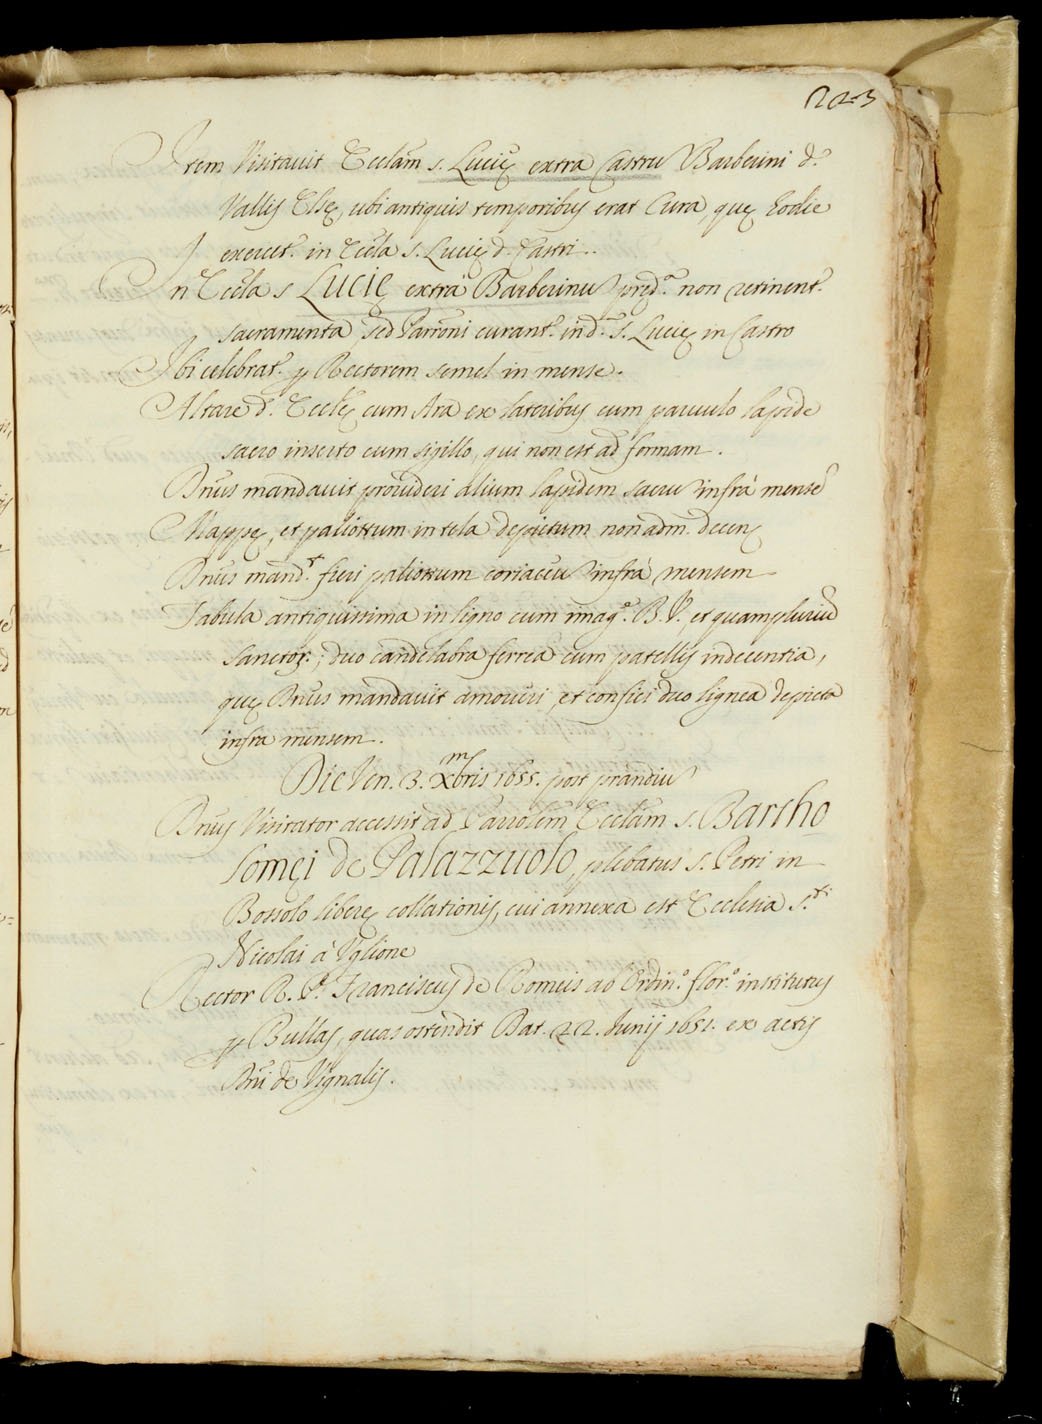 223
Item Visitavit Ecclam s. Lucię extra Castru Barberini d.
Vallis Elsę, ubi antiquis temporibus erat Cura, quę hodie
exercet.r in Eccla s. Lucię d. Castri.
In Eccla s Lucię extra Barberinu pręd.a non retinent.r
sacramenta, sed Parrōni curant.r in d. s. Lucię in Castro
Ibi celebrat.r p Rectorem semel in mense.
Altare d. Ecclę cum Ara ex lateribus cum parvulo lapide
sacro inserto cum sigillo, qui non est ad formam.
Dnus mandavit provideri alium lapidem sacru infrà mense
Mappę, et paliottum in tela depictum non adm. decens
Dnus mand.t fieri paliottum coriaceu infrà mensem
Tabula antiquissima in ligno cum imag.e B. V. et quampluriu
sanctoꝝ; duo candelabra ferrea cum patellis indecentia,
quę Dnus mandavit amoveri, et confici duo lignea depicta
infra mensem.
Die Ven. 3. Xmbris 1655. post prandiu
Dnus Visitator accessit ad Parrolem Ecclam s. Bartho
lomęi de Palazzuolo, plebatus s. Petri in
Bossolo liberę collationis, cui annexa est Ecclesia s.ti
Nicolai à Uglione
Rector R. P. Franciscus de Romeis ab Ordin.o flor.o institutus
p Bullas, quas ostendit Dat. 22. Junij 1651. ex actis
Dni de Vignalis.